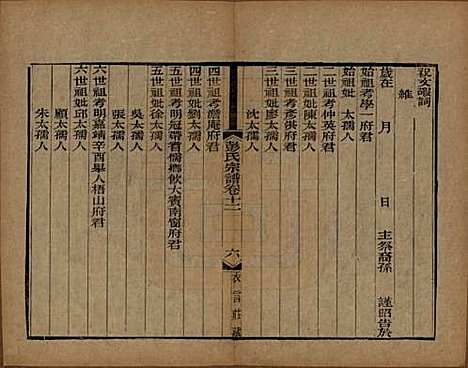 祝文襯詞
維
歲在 月 日 主祭裔孫 謹昭告於
始祖考學一府君
始祖妣 太孺人
二世祖考仲英府君
二世祖妣陳太孺人
三世祖考彥洪府君
三世祖妣廖太孺人
沈太孺人
彭氏宗譜卷十二
六
衣言莊藏
四世祖考 庵府君
四世祖妣劉太孺人
五世祖考明冠帶耆儒鄉飲大賓南窗府君
五世祖妣徐太孺人
吳太孺人
張太孺人
六世祖考明嘉靖辛酉舉人梧山府君
六世祖妣邱太孺人
顧太孺人
朱太孺人